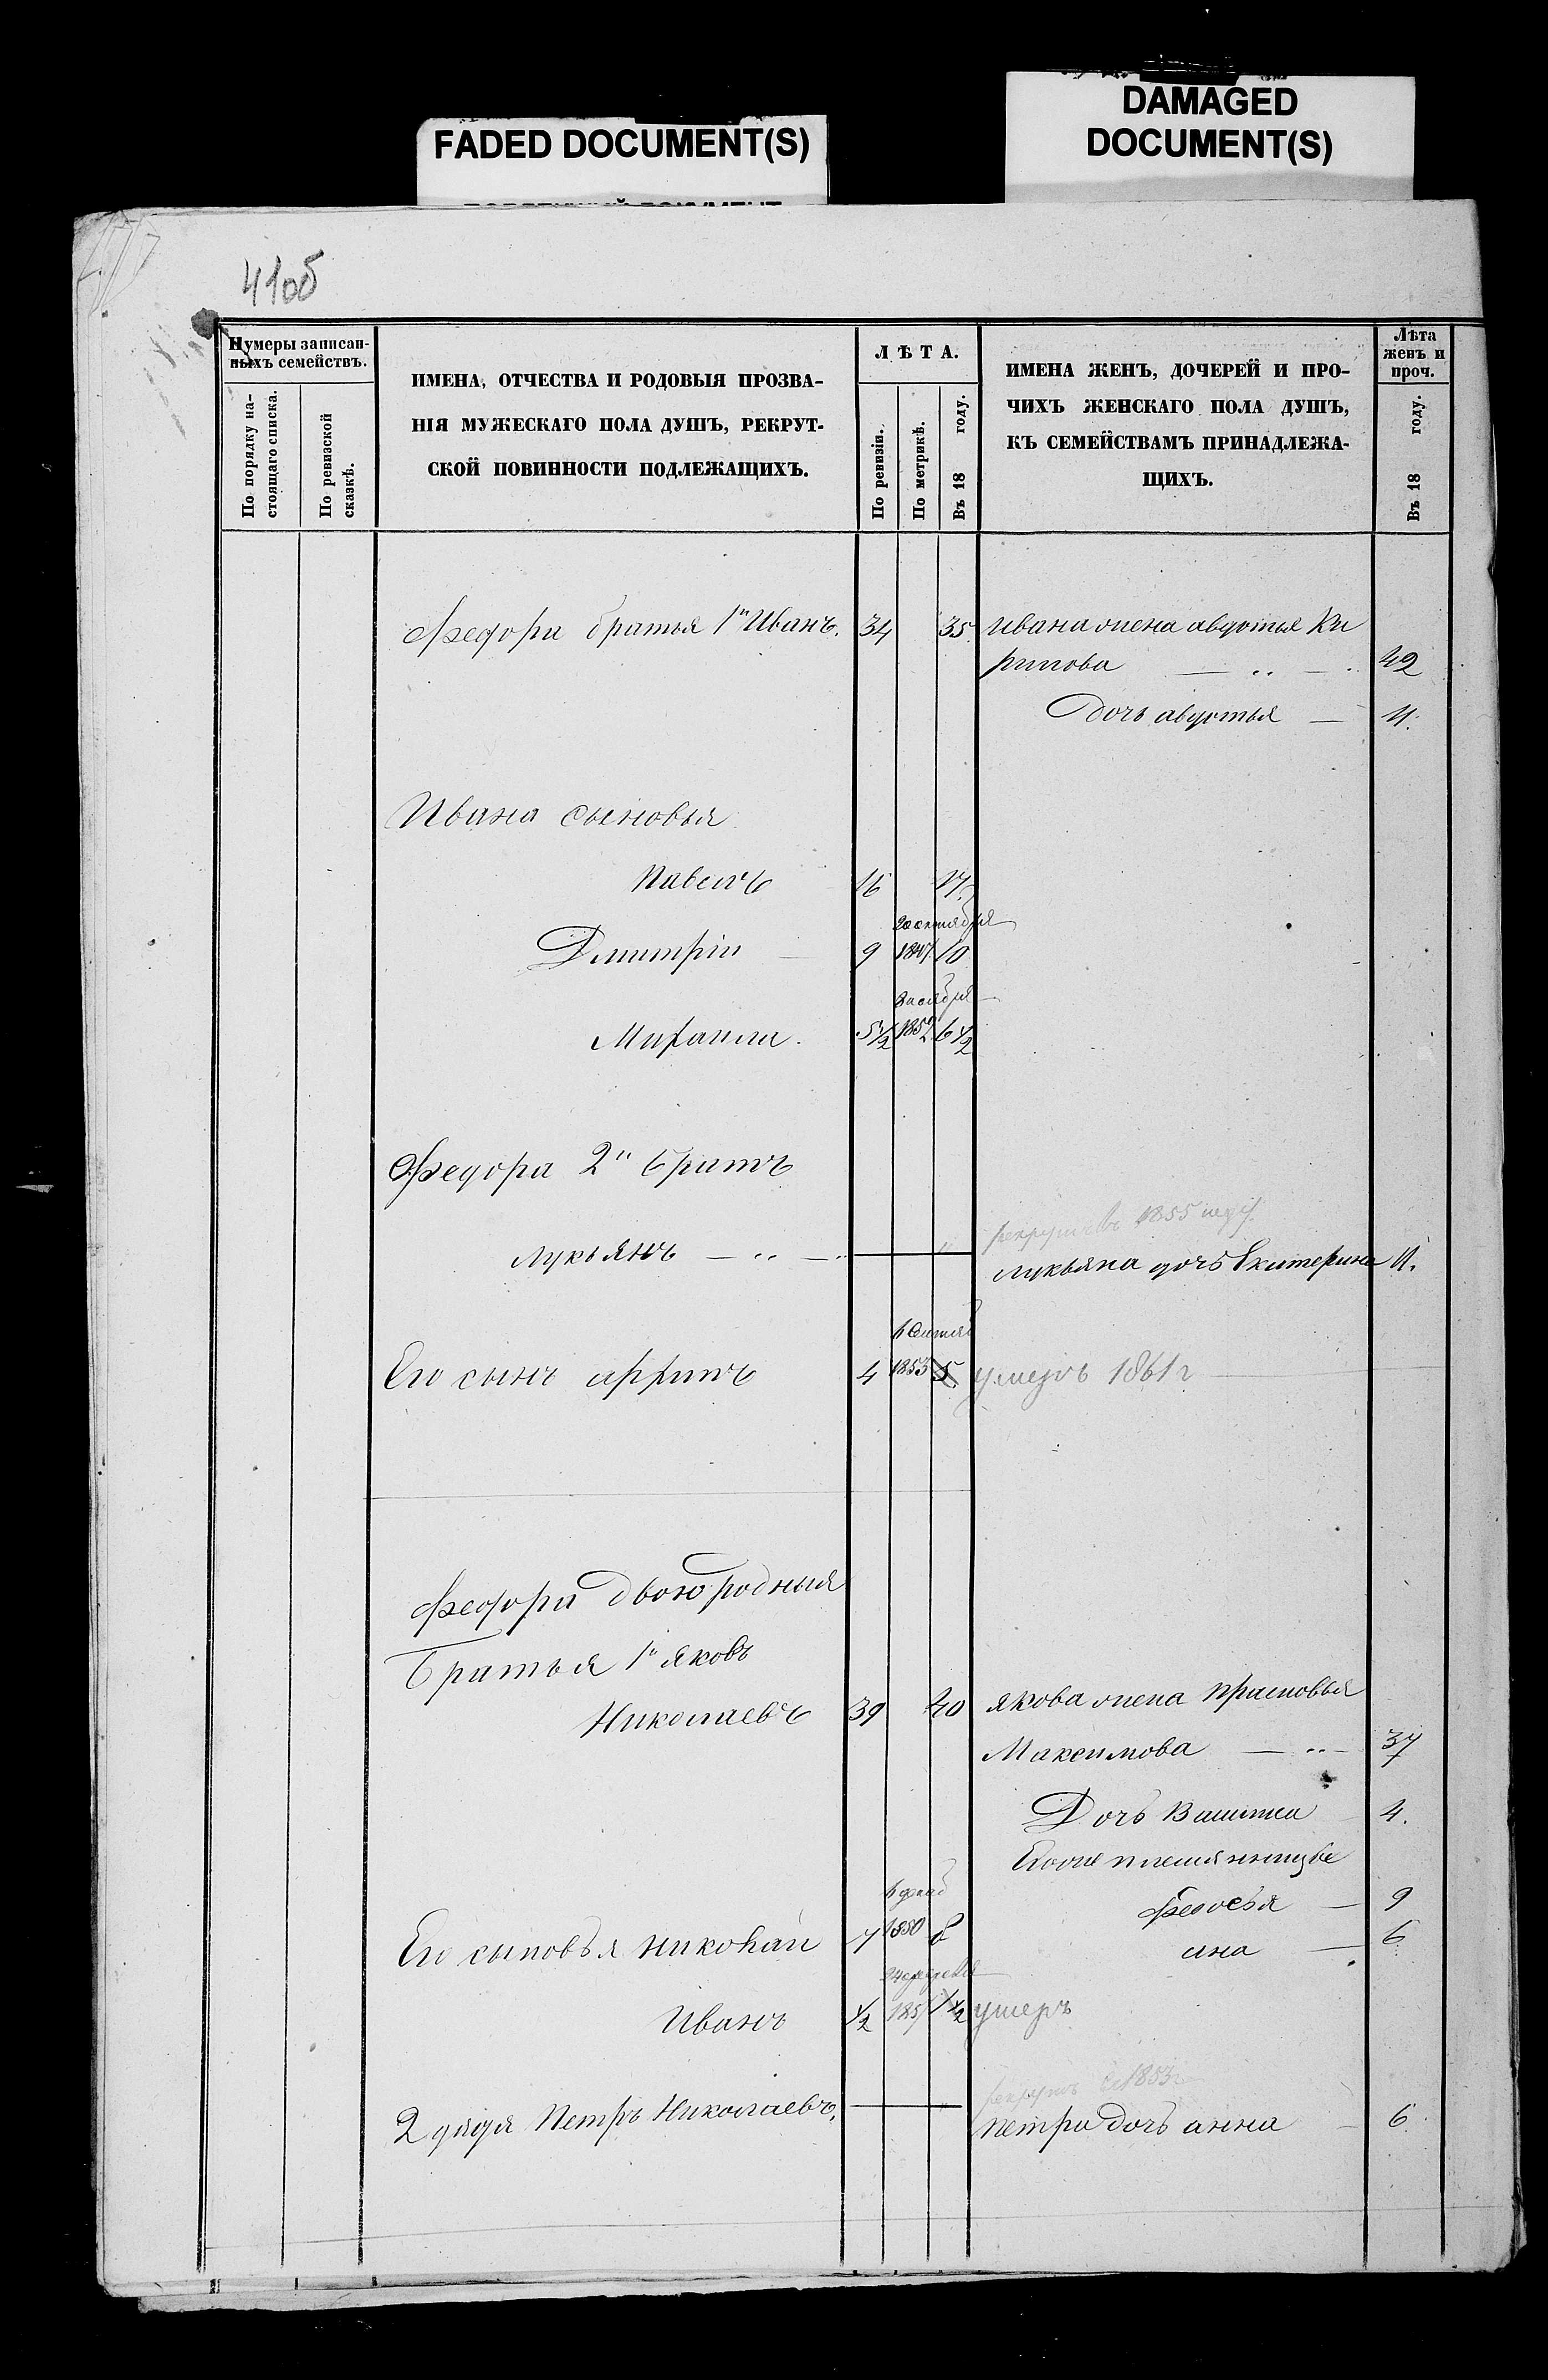 FADED DOCUMENT(S)
DAMAGED
DOCUMENT(S)
41об
Нумеры записан-
ныхъ семействъ.
По порядку на-
стоящаго списка.
По ревизской
сказкѣ.
ИМЕНА, ОТЧЕСТВА И РОДОВЫЯ ПРОЗВА-
НІЯ МУЖЕСКАГО ПОЛА ДУШЪ, РЕКРУТ-
СКОЙ ПОВИННОСТИ ПОДЛЕЖАЩИХЪ.
ЛѢТА.
По ревизіи.
По метрикѣ.
Въ 18 году.
ИМЕНА ЖЕНЪ, ДОЧЕРЕЙ И ПРО-
ЧИХЪ ЖЕНСКАГО ПОЛА ДУШЪ,
КЪ СЕМЕЙСТВАМЪ ПРИНАДЛЕЖА-
ЩИХЪ.
Лѣта
женъ и
проч.
Въ 18 году.
Федора братья 1й Иванъ. 34 35. Ивана жена авдотья Ки
рилова 42
Дочь авдотья 11.
Ивана сыновья
Павелъ 16 17.
20 октября
Дмитріи 9 1847 10
Михаила. 5 1/2 1852 6 1/2
Федора 2й братъ
рекрутъ въ 1855
Лукьянъ
лукьяна дочь Екатерина 11.
Его сынъ 4 1853 5. умеръ 1861 г
Федора двоюродныя
Братья 1й яковъ
Николаевъ 39 40 якова жена Прасковья
Максимова 37
Дочь 4.
племянницы
Федосья 9
6 декаб
Его сыновья николай 7 1850 8
ана 6
Иванъ 1/2 1857 1 1/2 умеръ
рекрутъ 1853 г
2 дядя Петръ Николаевъ.
петра дочь анна 6.